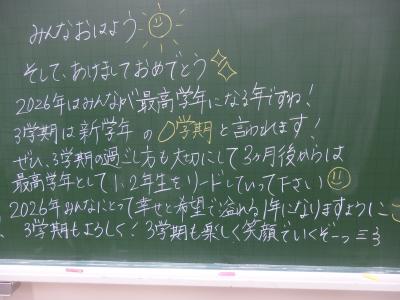 みんなおはよう
そして、あけましておめでとう
2026年はみんなが最高学年になる年ですね!
3学期は新学年の0学期と言われます!
ぜひ、3学期の過ごし方も大切にして3ヶ月後からは
最高学年として1、2年生をリードしていって下さい
2026年みんなにとって幸せと希望で溢れる1年になりますように
3学期もよろしく!3学期も楽しく笑顔でいくぞーっ